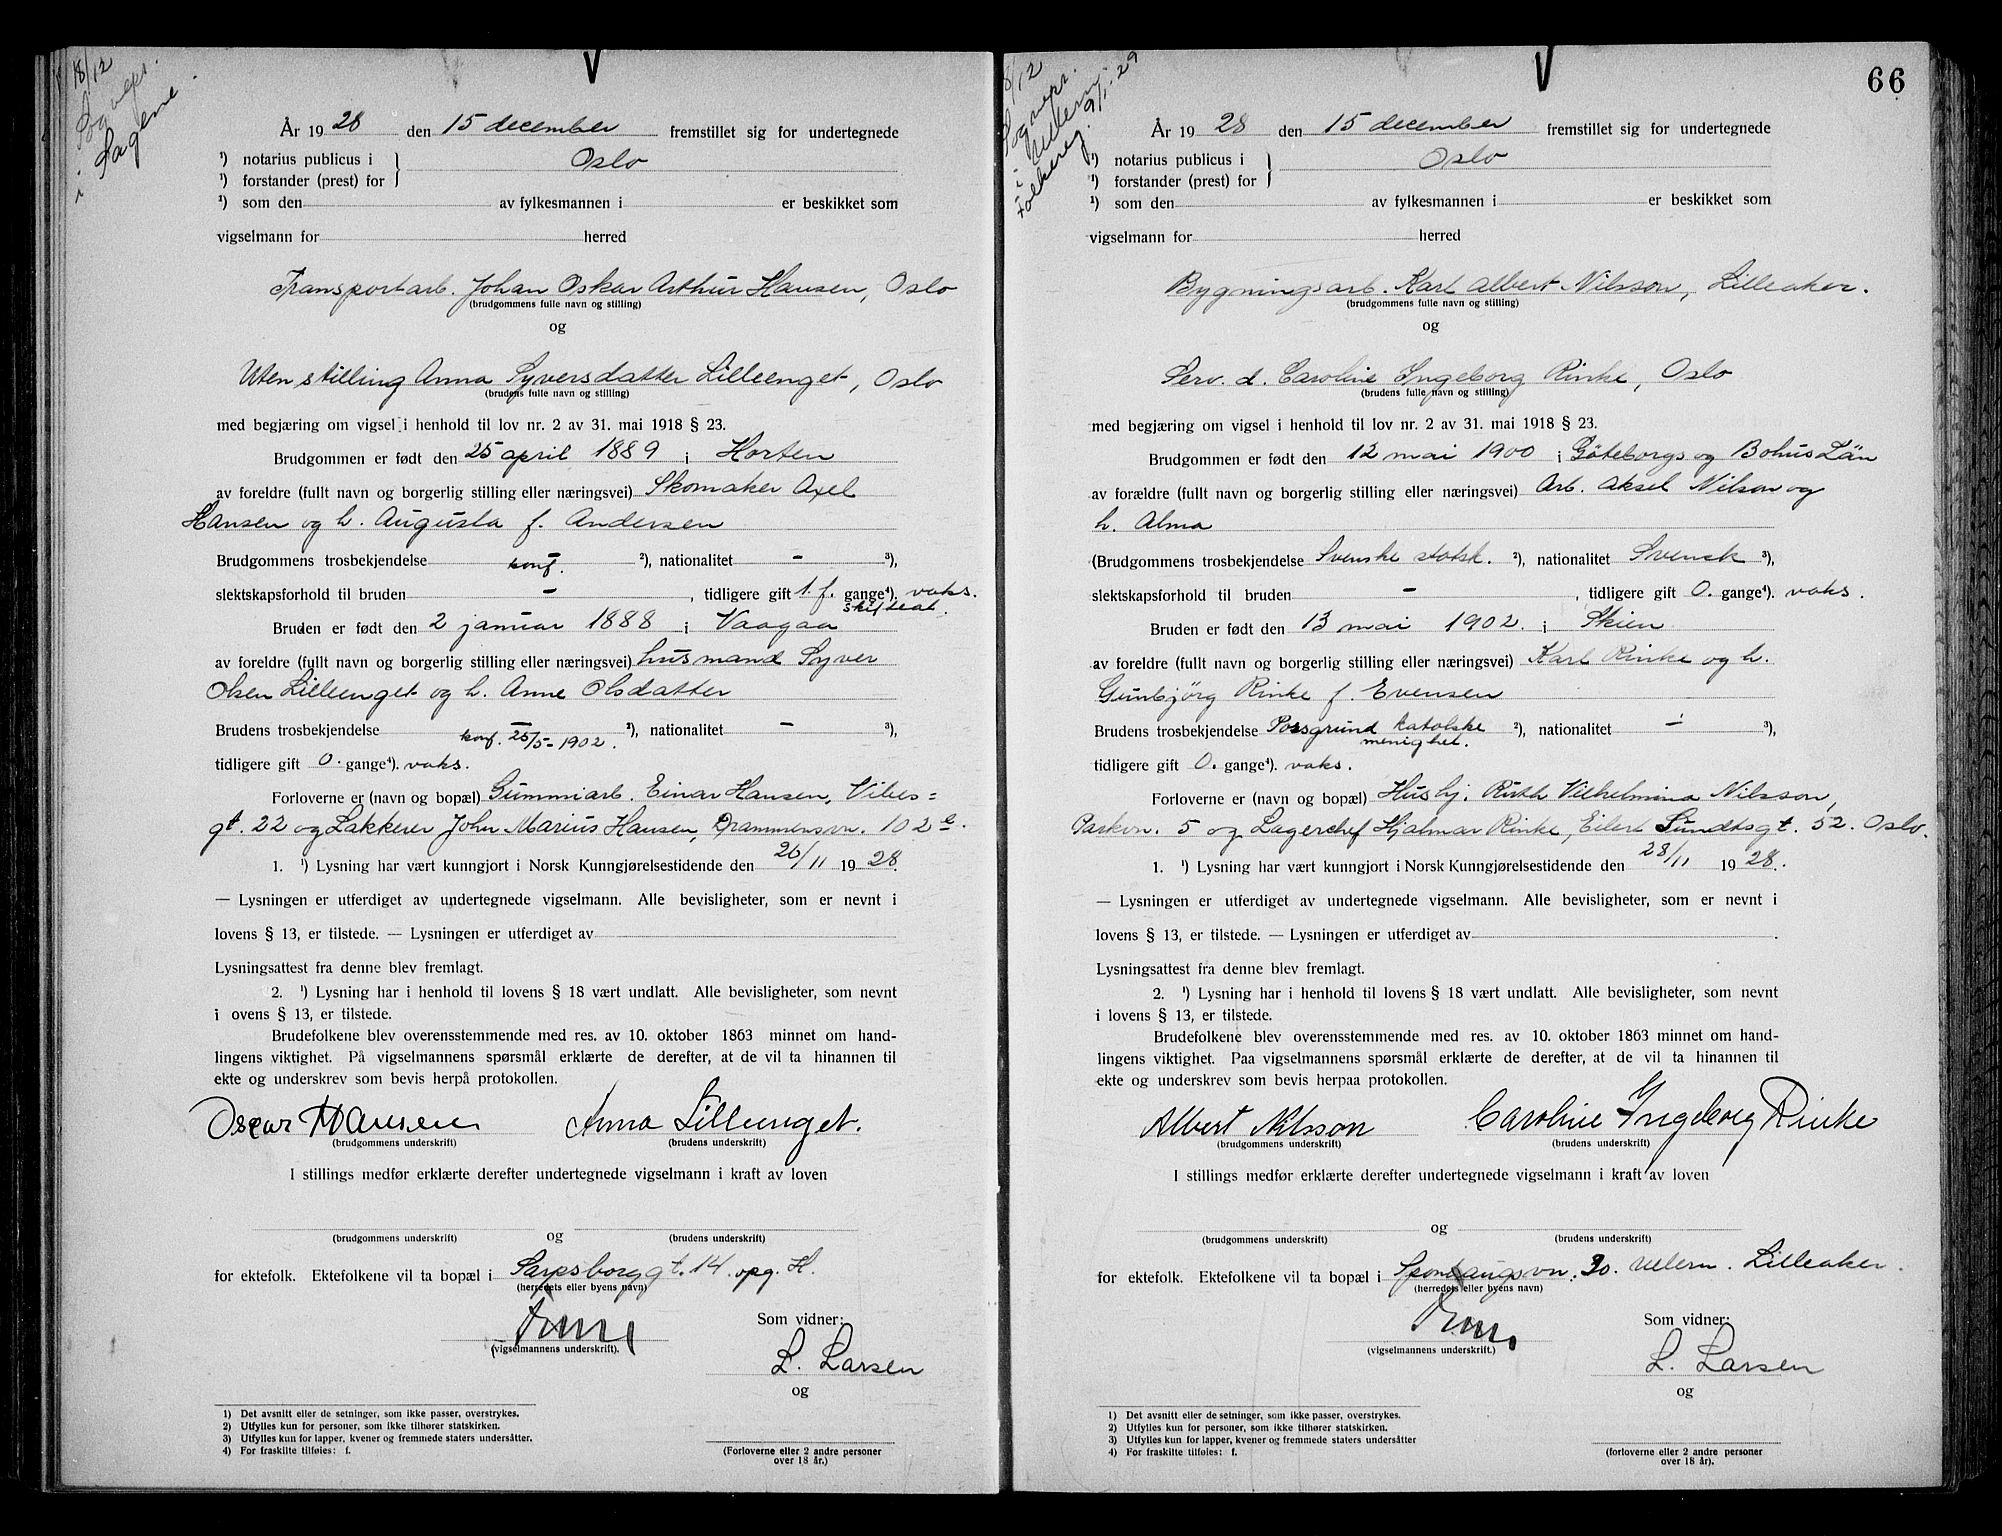 18/12
Sognepr.
i Sagene.
År 1928 den 15 december fremstillet sig for undertegnede
¹) notarius publicus i } Oslo
¹) forstander (prest) for
¹) som den av fylkesmannen i er beskikket som
vigselmann for herred
Transportarb. Johan Oskar Arthur Hansen, Oslo
(brudgommens fulle navn og stilling)
og
Uten stilling Anna Syversdatter Lilleenget, Oslo
(brudens fulle navn og stilling)
med begjæring om vigsel i henhold til lov nr. 2 av 31. mai 1918 § 23.
Brudgommen er født den 25 april 1889 i Horten
av foreldre (fullt navn og borgerlig stilling eller næringsvei) Skomaker Axel
Hansen og h. Augusta f. Andersen
Brudgommens trosbekjendelse – konf. ²), nationalitet – ³),
slektskapsforhold til bruden – , tidligere gift 1. f. gange⁴). vaks.
skifteat.
Bruden er født den 2 januar 1888 i Vaagaa
av foreldre (fullt navn og borgerlig stilling eller næringsvei) husmand Syver
Olsen Lilleenget og h. Anne Olsdatter
Brudens trosbekjendelse – konf. 25/5-1902. ²), nationalitet – ³),
tidligere gift 0. gange⁴). vaks.
Forloverne er (navn og bopæl) Gummiarb. Einar Hansen, Vibes=
gt. 22 og Lakkerer John Marius Hansen, Drammensvn. 102 e.
1. ¹) Lysning har vært kunngjort i Norsk Kunngjørelsestidende den 26/11 1928.
— Lysningen er utferdiget av undertegnede vigselmann. Alle bevisligheter, som er nevnt i
lovens § 13, er tilstede. — Lysningen er utferdiget av
Lysningsattest fra denne blev fremlagt.
2. ¹) Lysning har i henhold til lovens § 18 vært undlatt. Alle bevisligheter, som nevnt
i ovens § 13, er tilstede.
Brudefolkene blev overensstemmende med res. av 10. oktober 1863 minnet om hand-
lingens viktighet. På vigselmannens spørsmål erklærte de derefter, at de vil ta hinannen til
ekte og underskrev som bevis herpå protokollen.
Oscar Hansen Anna Lilleenget.
(brudgommens underskrift) (brudens underskrift)
I stillings medfør erklærte derefter undertegnede vigselmann i kraft av loven
og
(brudgommens underskrift) (brudens underskrift)
for ektefolk. Ektefolkene vil ta bopæl i Sarpsborggt. 14. opg. H.
(herredets eller byens navn)
Som vidner:
(vigselmannens underskrift).
L. Larsen
og
1) Det avsnitt eller de setninger, som ikke passer, overstrykes.
2) Utfylles kun for personer, som ikke tilhører statskirken.
3) Utfylles kun for lapper, kvener og fremmede staters undersåtter.
4) For fraskilte tilføies: f.
(Forloverne eller 2 andre personer
over 18 år.)
66
8/12
Sognepr.
i Ullern
Folkereg. 9/1-29
År 1928 den 15 december fremstillet sig for undertegnede
¹) notarius publicus i } Oslo
¹) forstander (prest) for
¹) som den av fylkesmannen i er beskikket som
vigselmann for herred
Bygningsarb. Karl Albert Nilsson, Lilleaker.
(brudgommens fulle navn og stilling)
og
Serv. d. Caroline Ingeborg Rinke, Oslo
(brudens fulle navn og stilling)
med begjæring om vigsel i henhold til lov nr. 2 av 31. mai 1918 § 23.
Brudgommen er født den 12 mai 1900 i Göteborgs og Bohus Län
av forældre (fullt navn og borgerlig stilling eller næringsvei) Arb. Aksel Nilson og
h. Alma
(Brudgommens trosbekjendelse Svenske statsk. ²), nationalitet Svensk ³),
slektskapsforhold til bruden – , tidligere gift 0. gange⁴). vaks.
Bruden er født den 13 mai 1902. i Skien
av foreldre (fullt navn og borgerlig stilling eller næringsvei) Karl Rinke og h.
Gunbjörg Rinke f. Evensen
Brudens trosbekjendelse Porsgrund katolske ²), nationalitet – ³),
menighet.
tidligere gift 0. gange⁴). vaks.
Forloverne er (navn og bopæl) Husbj. Ruth Vilhelmina Nilsson,
Parkvn. 5 og Lagerchef Hjalmar Rinke, Eilert Sundtsgt. 52. Oslo.
1. ¹) Lysning har vært kunngjort i Norsk Kunngjørelsestidende den 28/11 1928.
— Lysningen er utferdiget av undertegnede vigselmann. Alle bevisligheter, som er nevnt i
lovens § 13, er tilstede. — Lysningen er utferdiget av .
Lysningsattest fra denne blev fremlagt.
2. ¹) Lysning har i henhold til lovens § 18 vært undlatt. Alle bevisligheter, som nevnt
i lovens § 13, er tilstede.
Brudefolkene blev overensstemmende med res. av 10. oktober 1863 minnet om hand-
lingens viktighet. Paa vigselmannens spørsmål erklærte de derefter, at de vil ta hinannen til
ekte og underskrev som bevis herpaa protokollen.
Albert Nilsson Caroline Ingeborg Rinke
(brudgommens underskrift) (brudens underskrift)
I stillings medfør erklærte derefter undertegnede vigselmann i kraft av loven
og
(brudgommens underskrift) (brudens underskrift)
for ektefolk. Ektefolkene vil ta bopæl i 30. Ullern. Lilleaker.
(herredets eller byens navn)
Som vidner:
(vigselmannens underskrift.)
L. Larsen
og
1) Det avsnitt eller de setninger, som ikke passer, overstrykes.
2) Utfylles kun for personer, som ikke tilhører statskirken.
3) Utfylles kun for lapper, kvener og fremmede staters undersåtter
4) For fraskilte tilføies: f.
(forloverne eller 2 andre personer
over 18 år).